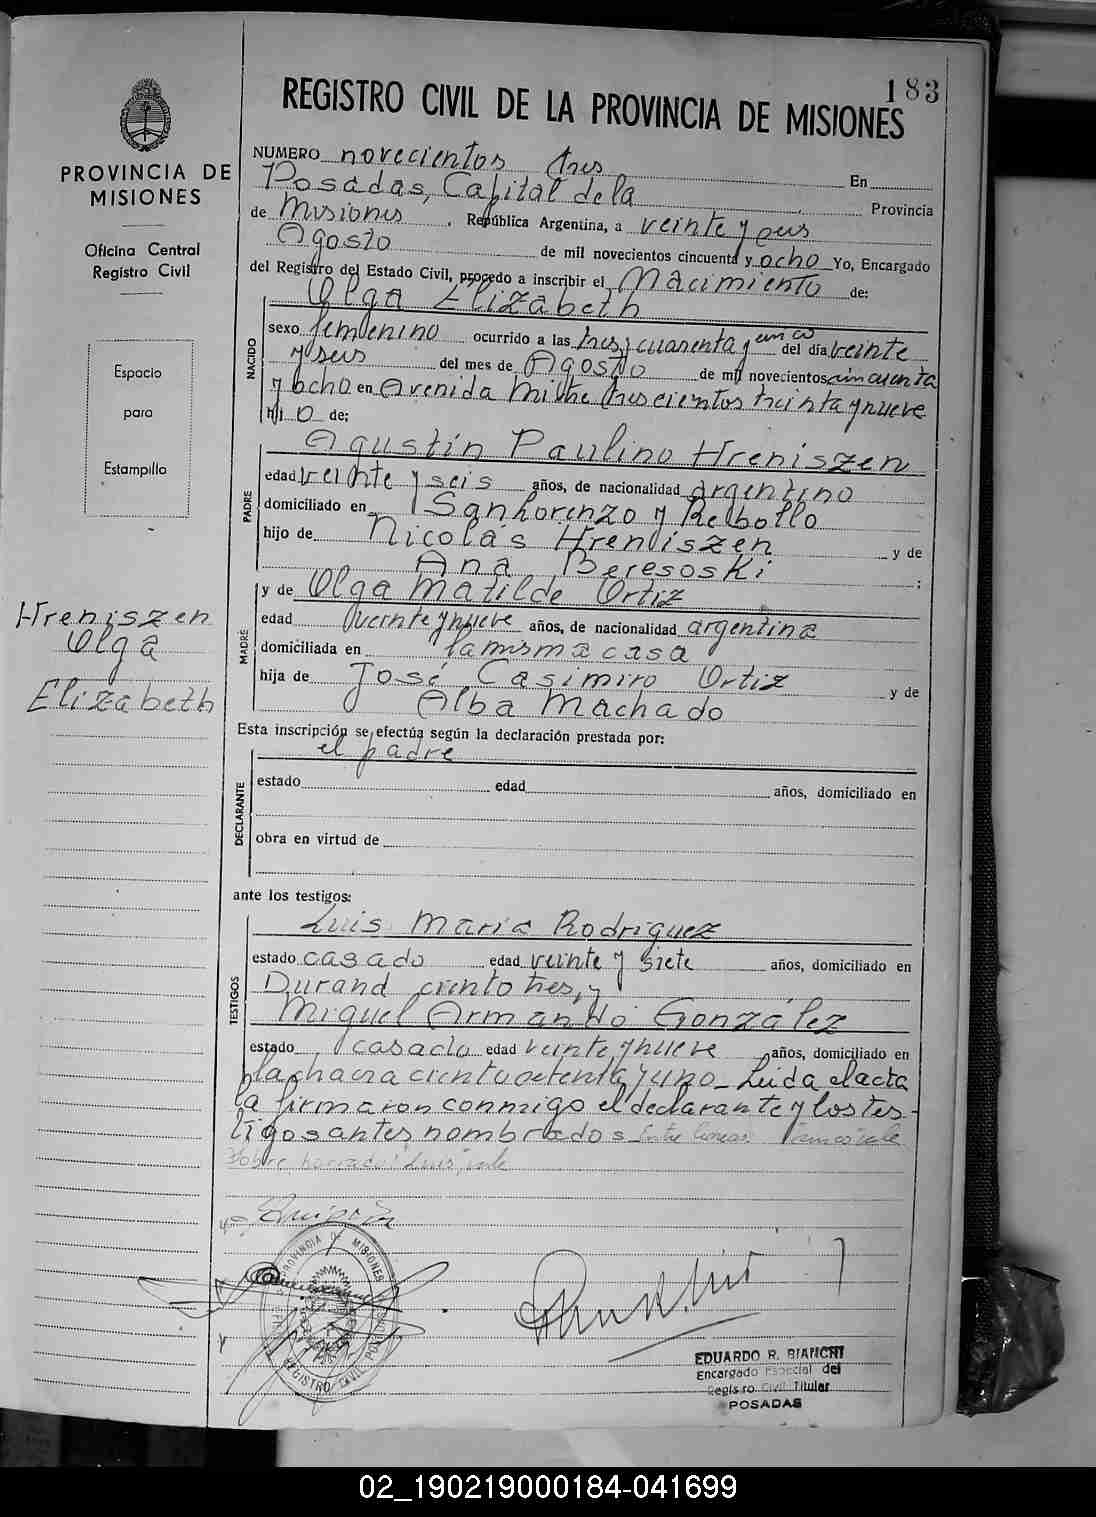 183
REGISTRO CIVIL DE LA PROVINCIA DE MISIONES
PROVINCIA DE
MISIONES
Oficina Central
Registro Civil
Espacio
para
Estampilla
Hreniszen
Olga
Elizabeth
NUMERO novecientos tres En
Posadas, Capital de la Provincia
de Misiones, República Argentina, a veinte y seis
Agosto de mil novecientos cincuenta y ocho Yo, Encargado
del Registro del Estado Civil, procedo a inscribir el Nacimiento de:
NACIDO
Olga Elizabeth
sexo femenino ocurrido a las tres y cuarenta y cinco del día veinte
y seis del mes de Agosto de mil novecientos cincuenta
y ocho en Avenida Mitre trescientos treinta y nueve
hij o de:
PADRE
Agustín Paulino Hreniszen
edad veinte y seis años, de nacionalidad argentino
domiciliado en San Lorenzo y Rebollo
hijo de Nicolas Hreniszen y de
Ana Beresoski ;
MADRE
y de Olga Matilde Ortiz
edad veinte y nueve años, de nacionalidad argentina
domiciliada en la misma casa
hija de José Casimiro Ortiz y de
Alba Machado
Esta inscripción se efectúa según la declaración prestada por:
DECLARANTE
el padre
estado edad años, domiciliado en
obra en virtud de
ante los testigos:
TESTIGOS
Luis Maria Rodriguez
estado casado edad veinte y siete años, domiciliado en
Durand ciento tres, y
Miguel Armando González
estado casado edad veinte y nueve años, domiciliado en
la chacra ciento setenta y uno_ Leida el acta
la firmaron conmigo el declarante y los tes-
tigos antes nombrados Entre lineas: cinco vale
Sobre borrado "Luis", vale
PROVINCIA DE MISIONES
REGISTRO CIVIL
EDUARDO R. BIANCHI
Encargado Especial del
Registro Civil Titular
POSADAS
02_190219000184-041699